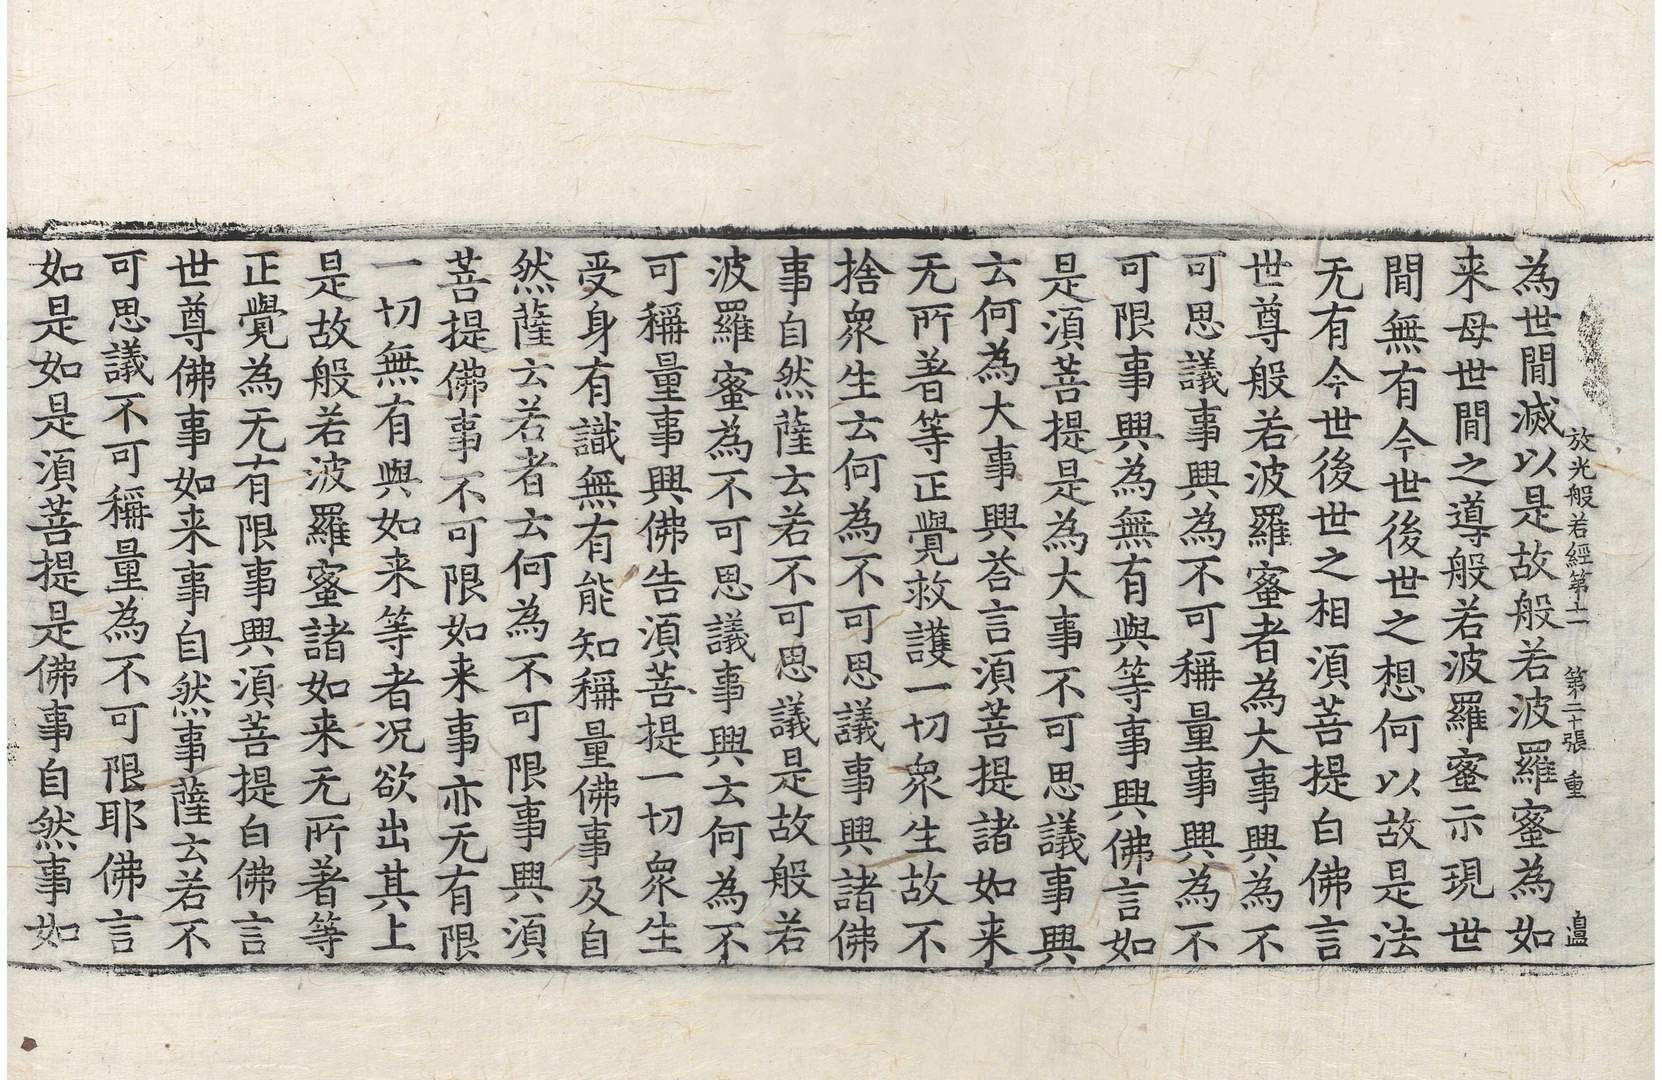 放光般若經第十一　第二十張　重
為世閒滅以是故般若波羅蜜為如
来母世閒之導般若波羅蜜示現世
閒無有今世後世之想何以故是法
无有今世後世之相湏菩提白佛言
世尊般若波羅蜜者為大事興為不
可思議事興為不可稱量事興為不
可限事興為無有與等事興佛言如
是湏菩提是為大事不可思議事興
云何為大事興荅言湏菩提諸如来
无所著等正覺救護一切衆生故不
捨衆生云何為不可思議事興諸佛
事自然薩云若不可思議是故般若
波羅蜜為不可思議事興云何為不
可稱量事興佛告湏菩提一切衆生
受身有識無有能知稱量佛事及自
然薩云若者云何為不可限事興湏
菩提佛事不可限如来事亦无有限
一切無有與如来等者况欲出其上
是故般若波羅蜜諸如来无所著等
正覺為无有限事興湏菩提白佛言
世尊佛事如来事自然事薩云若不
可思議不可稱量為不可限耶佛言
如是如是湏菩提是佛事自然事如